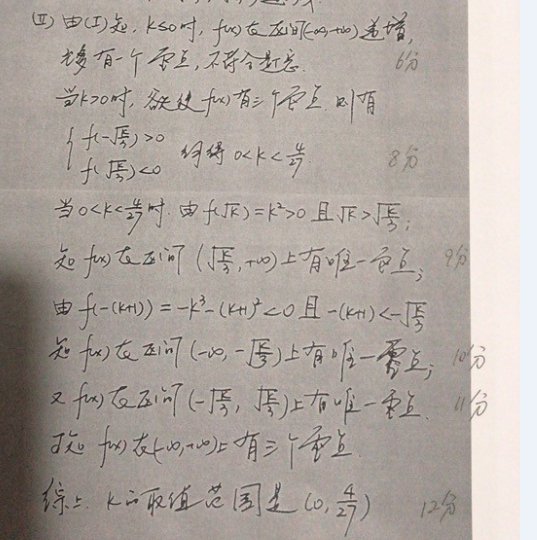 (Ⅱ) 由(Ⅰ)知, k≤0时, f(x)在区间(-∞,+∞)递增,
至多有一个零点, 不符合题意. 6分
当k>0时, 欲使f(x)有三个零点 则有
{ f(-√(k/3))>0
f(√(k/3))<0 解得 0<k<4/27. 8分
当0<k<4/27时. 由f(√k)=k²>0 且√k>√(k/3);
知f(x)在区间(√(k/3),+∞)上有唯一零点; 9分
由f(-(k+1))=-k³-(k+1)²<0 且 -(k+1)<-√(k/3)
知f(x)在区间(-∞,-√(k/3))上有唯一零点; 10分
又f(x)在区间(-√(k/3), √(k/3))上有唯一零点. 11分
故f(x)在(-∞,+∞)上有三个零点.
综上. k的取值范围是(0, 4/27) 12分